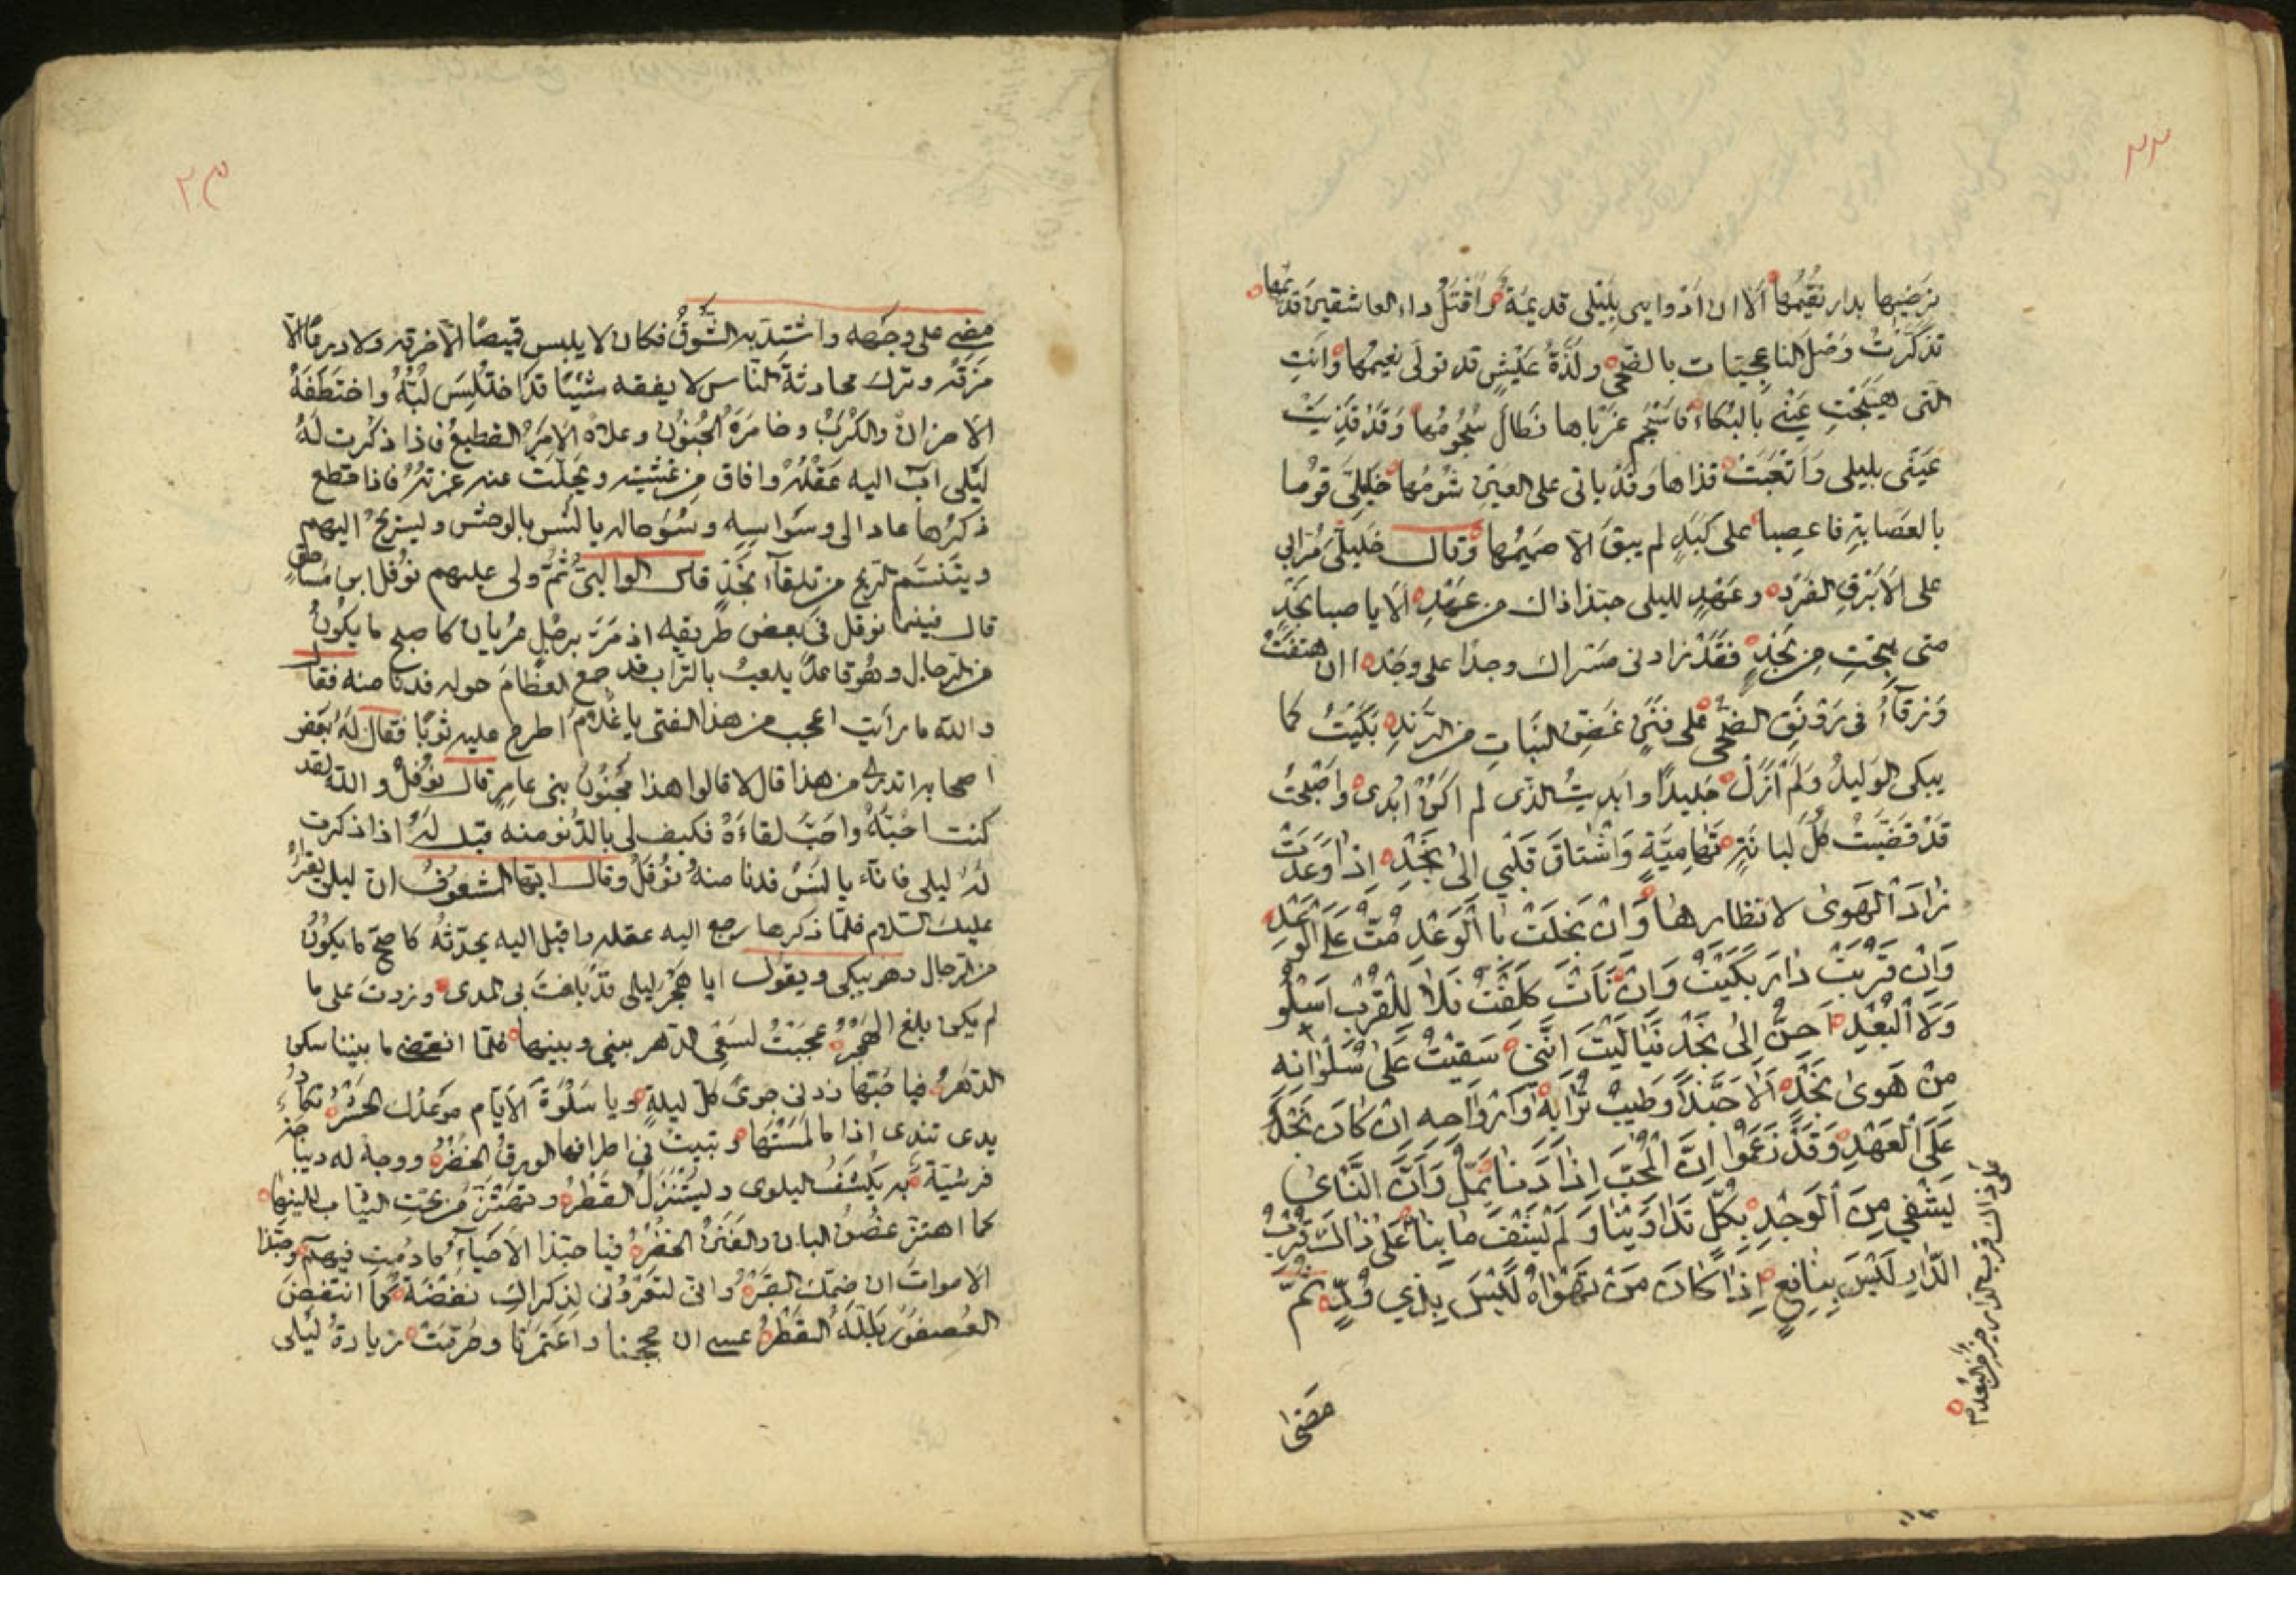 نرضيها بدار نقيمها الا ان ادوايى بليلى قديمة واقتل داء العاشقين قديمها
تذكرت وصل الناعجيات بالضحى ولذة عيش قد تولى نعيمها وانت
التى هيجت عينى بالبكاء فاسجم غرباها فطال سجومها وقد قذيت
عينى بليلى واتعبت قذاها وقد ياتى على العين شومها خليلى قوما
بالعصابة فاعصبا على كبد لم يبق الا صميمها وقال خليلى مرا بى
على الابرق الفرد وعهد لليلى حبذا ذاك من عهد الا يا صبا نجد
متى هجت من نجد فقد زادنى مسراك وجدا على وجد اان هتفت
ورقاء فى رونق الضحى على فنن غض النبات من الرند بكيت كما
يبكى الوليد ولم ازل جليدا وابديت الذى لم اكن ابدى واصبحت
قد قضيت كل لبانة تهامية واشتاق قلبي الى نجد اذا وعدت
زاد الهوى لانتظارها وان بخلت بالوعد مت على الوعد
وان قربت دار بكيت وان نأت كلفت فلا للقرب اسلو
ولا البعد احن الى نجد فيا ليت اننى سقيت على سلوانه
من هوى نجد الا حبذا وطيب ترابه وارواحه ان كان نجد
على العهد وقد زعموا ان المحب اذا دنا يمل وان النأى
يشفي من الوجد بكل تداوينا ولم يشف ما بنا على ذاك قرب
الدار ليس بنافع اذا كان من تهواه ليس بذي ود تم
على ذاك قرب الدار خير من البعد
مضى
٢٣
مضى على وجهه واشتد به الشوق فكان لا يلبس قيصا الا خرقه ولا الا
مزقه وترك محادثة الناس لا يفقه شيئا قد اختلس لبه واختطفه
الاحزان والكرب وخامره الجنون وعلاه الامر الفظيع فاذا ذكرت له
ليلى آب اليه عقله وافاق من غشيته وتجلت عنه غمرته فاذا قطع
ذكرها عاد الى وسواسه وسوء حاله يانس بالوحش ويستريح اليهم
ويتنسم الريح من تلقآء نجد قال الوالبى ثم ولى عليهم نوفل ابن مساحق
قال فبينما نوفل فى بعض طريقه اذ مر برجل عريان كاصبح ما يكون
من الرجال وهو قاعد يلعب بالتراب قد جمع العظام حوله فدنا منه فقال
والله ما رايت اعجب من هذا الفتى يا غلام اطرح عليه ثوبا فقال له بعض
اصحابه اتدرى من هذا قال لا قالوا هذا مجنون بنى عامر قال نوفل والله لقد
كنت احبه واحب لقاءه فكيف لى بالدنو منه قيل له اذا ذكرت
له ليلى فانه يانس فدنا منه نوفل وقال ايها المشعوف ان ليلى يقرئ
عليك السلام فلما ذكرها رجع اليه عقله واقبل اليه يحدثه كاصح ما يكون
من الرجال وهو يبكى ويقول ايا هجر ليلى قد بلغت بى المدى وزدت على ما
لم يكن بلغ الهجر عجبت لسعى الدهر بينى وبينها فلما انقضى ما بيننا سكن
الدهر فيا حبها زدنى جوى كل ليلة ويا سلوة الايام موعدك الحشر تكاد
يدى تندى اذا ما لمستها وتنبت فى اطرافها الورق الخضر ووجه له ديباجة
قرشية به يكشف البلوى ويستنزل القطر وتهتز من تحت الثياب للينها
كما اهتز غصن البان والفنن الخضر فيا حبذا الاحياء ما دمت فيهم وحبذا
الاموات ان ضمك القبر وانى لتعرونى لذكراك نفضة كما انتفض
العصفور بلله القطر عسى ان حججنا واعتمرنا وحرمت زيارة ليلى